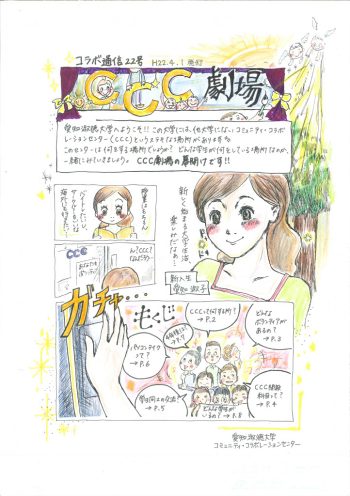 コラボ通信22号 H22.4.1発行
CCC劇場
愛知淑徳大学へようこそ!! この大学には、他大学にない、コミュニティ・コラボ
レーションセンター(CCC)というステキな場所があります。
このセンターは何をする場所でしょうか? どんな学生が何をしている場所なのか、
一緒にみていきましょう。 CCC劇場の幕開けです!!
新しく始まる大学生活、
楽しみだなぁ…
新入生
愛知淑子
授業はもちろん
バイトしたいし、
サークルもいいな
海外も行きたい
CCC
ん?CCC?
なんだろう…
ガチャ…
もくじ
CCCって何する所?
→P.2
どんな
ボランティアが
あるの?
→P.3
CCC開設
科目って?
→P.4
学生同士の交流?
→P.5
パソコンテイク
って?
→P.6
→P.7
どんな学生が
いるの?→P.8
愛知淑徳大学
コミュニティ・コラボレーションセンター